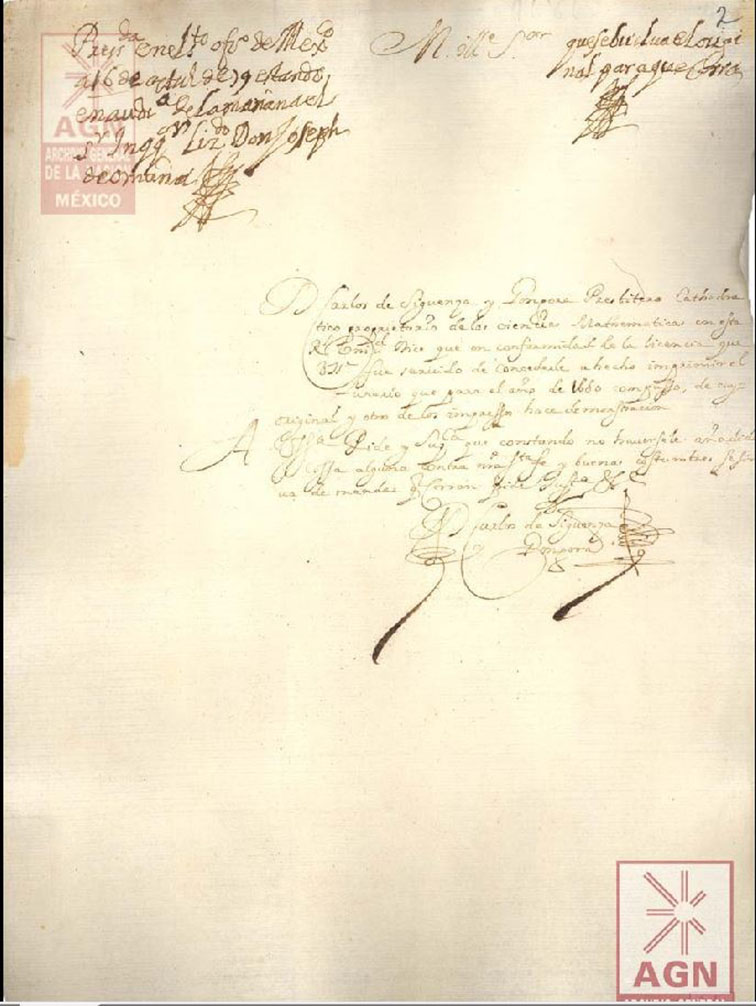 2
Pres.da en el s.to ofi.o de Mex.co
a 16 de de 79 estando
en audi.a de la mañana el
s.r Inqq.or Liz.do Don Joseph
de omaña
M. ill.e S.or
que se buelua el origi
nal para que Corra
D Carlos de Siguenza y Gongora Presbitero Cathedra
tico proprietario de las ciencias Mathematicas en esta
R.l Dice que en conformidad de la licencia que
fue seruido de concederle a hecho imprimir el
Lunario que para el año de 1680 compusso, de cuyo
original y otro de los impressos hace demonstracion
A Pide y Sup.ca que constando no auersele añadido
cossa alguna contra n.ra S.ta fe y buenas costumbres se sir
ua de mandar Corran pide Just.a &.c
D Carlos de Siguenza
y Gongora
AGN
ARCHIVO GENERAL
DE LA NACIÓN
MÉXICO
AGN
ARCHIVO GENERAL